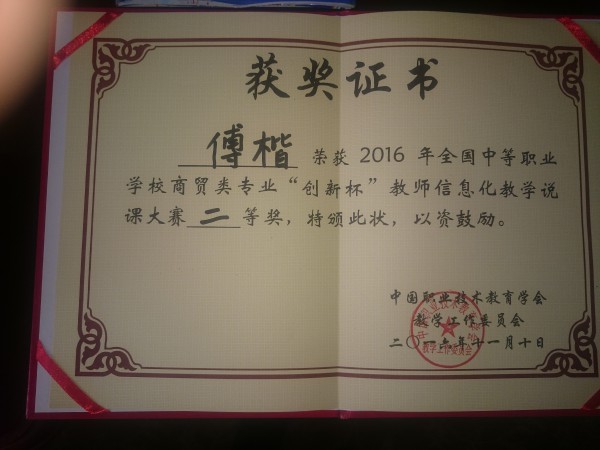 获奖证书
傅楷 荣获 2016 年全国中等职业
学校商贸类专业“创新杯”教师信息化教学说
课大赛 二 等奖，特颁此状，以资鼓励。
中国职业技术教育学会
教学工作委员会
二〇一六年十一月十日
教学工作委员会